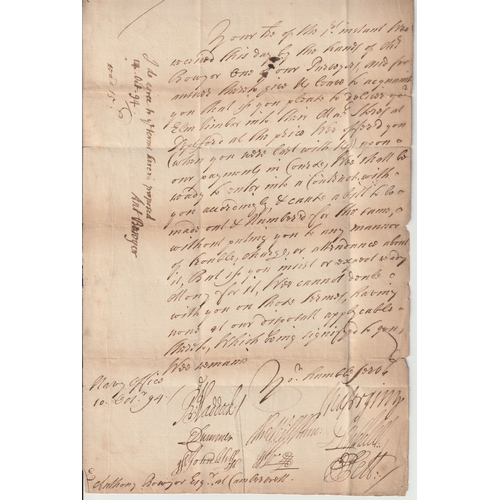 Your tre of the 1st instant Wee
received this day by the hands of Mr
Bowyer One of our Purveyors, and for
answer thereto give us leave to acquaint
you that if you please to deliver your
Elm timber into their Mats Stores at
Deptford at the price Wee offered you
(when you were last with us) upon
our payments in Course, Wee shall be
ready to enter into a Contract with
you accordingly, & cause a bill to be
made out & Number'd for the same,
without puting you to any manner
of trouble, charge, or attendance about
it, But if you insist or expect ready
Mony for it, Wee cannot
with you on those termes, having
none at our disposall applycable
thereto, Which being signifyed to you,
Wee remaine
Yor humble Servts
Navy Office
10 Octr 94
Anthony Bowyer Esqr at Camberwell
I do agree to ye terms herein proposed
Octr 94
Ant Bowyer